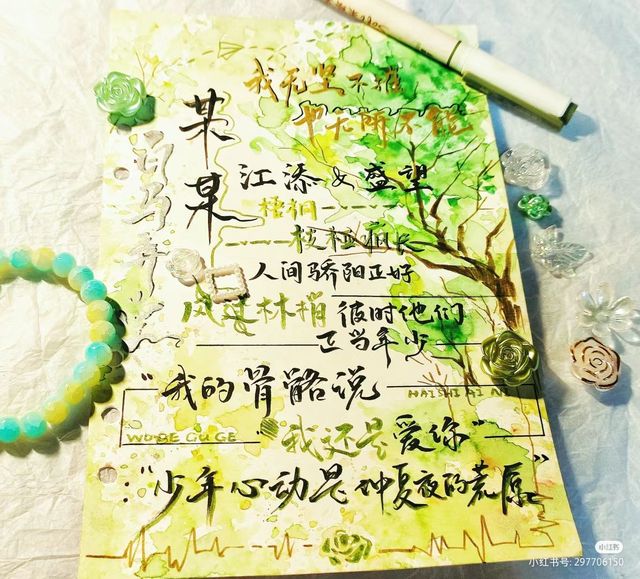 我无坚不摧
也无所不能
某某
白马少年
江添&盛望
梧桐
枝桠疯长
人间骄阳正好
风过林梢 彼时他们
正当年少
"我的骨骼说
HAISHI AI NI
WO DE GU GE
我还是爱你"
"少年心动是仲夏夜的荒原"
小红书
小红书号: 297706150